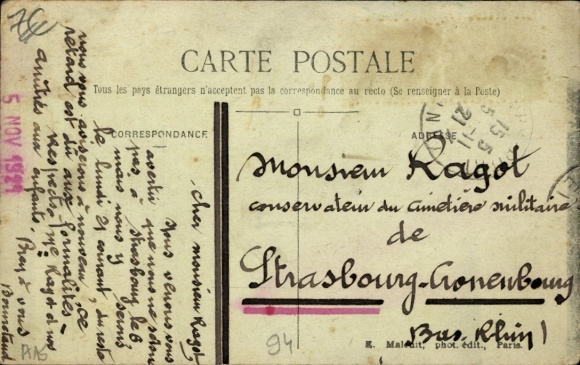 CARTE POSTALE
Tous les pays étrangers n'acceptent pas la correspondance au recto (Se renseigner à la Poste)
CORRESPONDANCE
ADRESSE
cher monsieur Ragot
nous venons vous
avertir que nous ne serons
pas à Strasbourg le 6
mais nous y serons
le lundi 21 courant, du reste
nous vous aviserons à nouveau, ce
retard est dû aux formalités -
Respects à Mme Ragot et nos
amitiés aux enfants. Bien à vous
5 NOV 1921
Monsieur Ragot
conservateur du cimetière militaire
de
Strasbourg-Cronenbourg
(Bas-Rhin)
94
E. Malcuit, phot. édit., Paris.